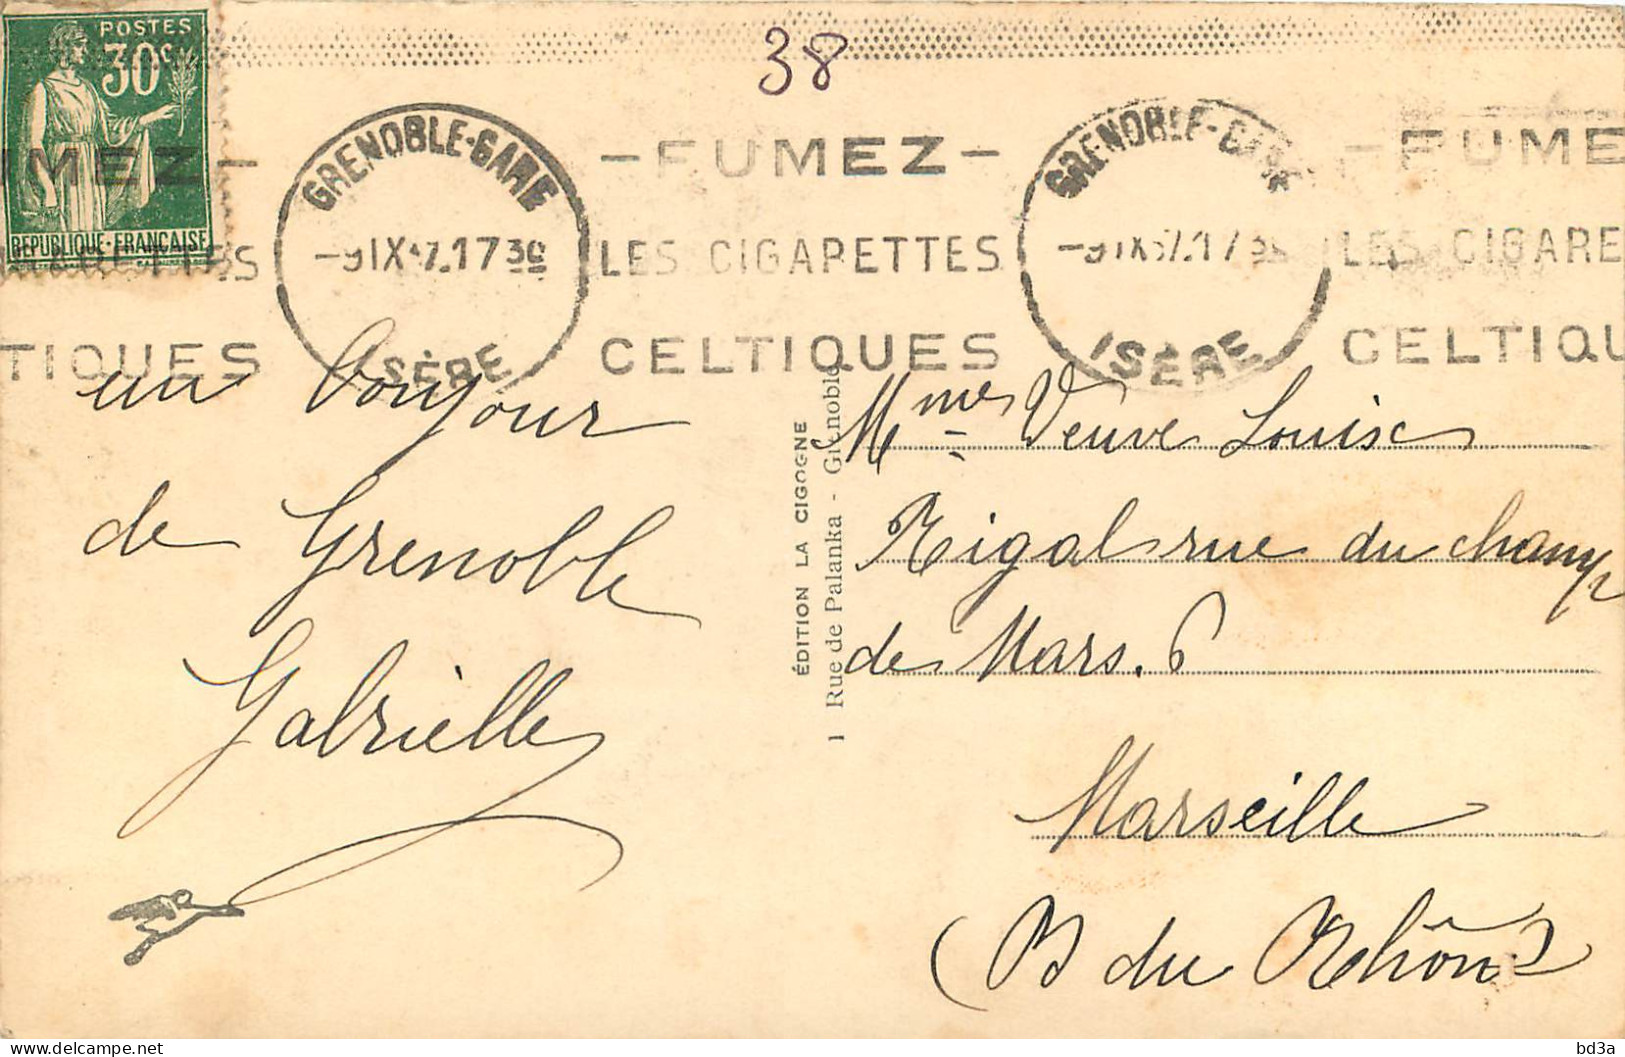 POSTES
30c
REPUBLIQUE·FRANÇAISE
38
GRENOBLE-GARE
-9 IX 37 17 30
ISÈRE
-FUMEZ-
LES CIGARETTES
CELTIQUES
GRENOBLE-GARE
-9 IX 37 17 30
ISÈRE
-FUME
LES CIGARE
CELTIQU
MEZ-
TIQUES
un bonjour
de Grenoble
Gabrielle
ÉDITION LA CIGOGNE
1 Rue de Palanka - Grenoble
Mme Veuve Louise
Rigal rue du champ
de Mars. 6
Marseille
(B du Rhône)
bd3a